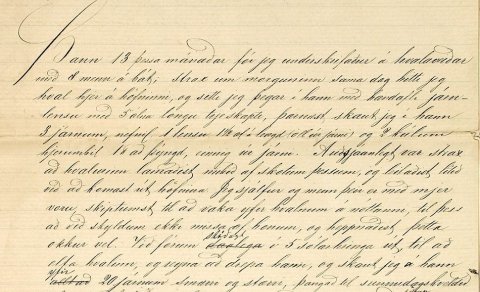 Þann 13 þessa mánaðar fór jeg undirskrifaður á hvalaveiðar
með 8 menn á bát; strax um morguninn sama dag hitti jeg
hval hjer á höfninni, og setti jeg þegar í hann með handafli járn-
lensu með 5 álna löngu trjeskapti, þarnæst skaut jeg í hann
3 járnum, nefnil 1 lensu 1½ al á lengd (allt úr járni) og 2 kúlum
hjerumbil 18 að þyngd, einnig úr járni. Auðsjáanlegt var strax
að hvalurinn lamaðist mikið af skotum þessum, og leitaðist
við að komast út höfnina. Jeg sjálfur og menn þeir er með mjer
voru, skiptumst til að vaka yfir hvalnum á nóttunni, til þess
að við skyldum ekki missa af honum, og heppnaðist þetta
okkur vel. Við fórum í 3 sólarhringa út, til að
elta hvalinn, og reyna að drepa hann, og skaut jeg á hann
yfir 20 járnum smáum og stórum, þangað til sunnudagskveldið